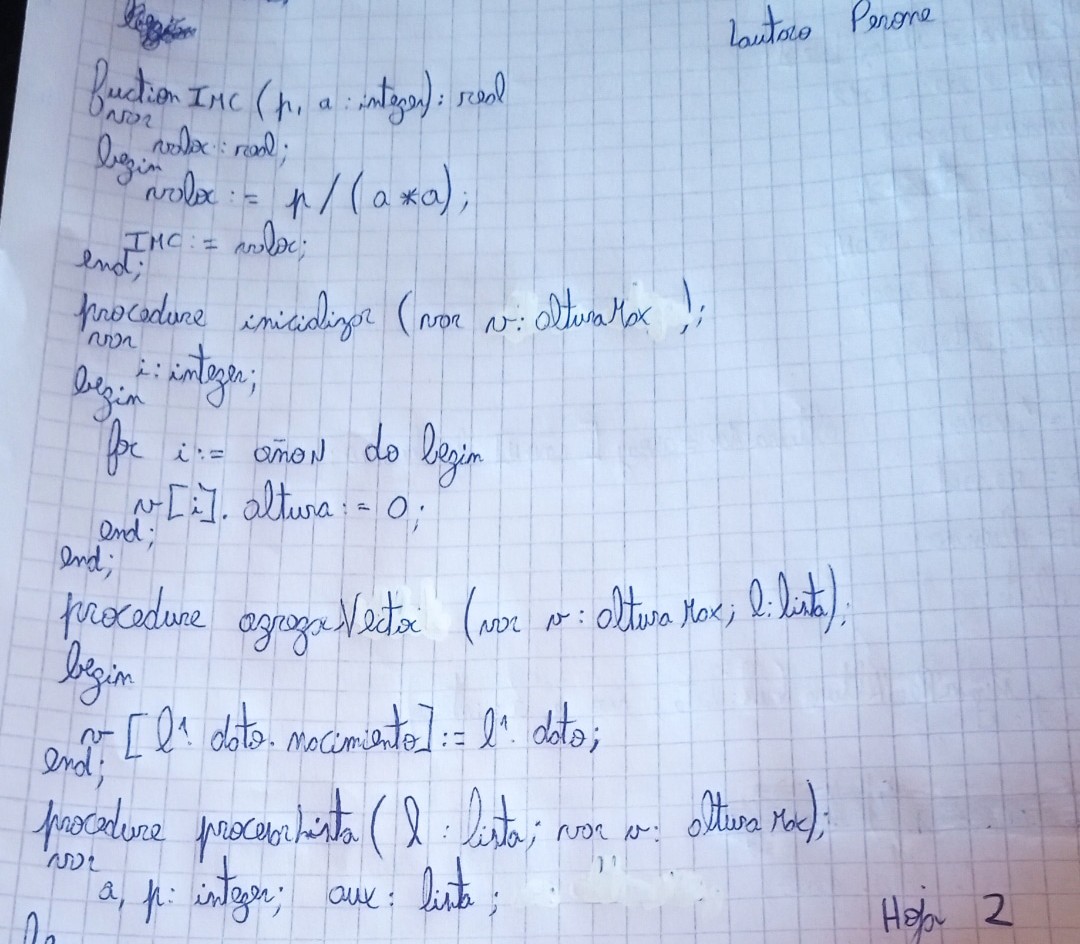 Lautaro Perone
fuction IMC (p, a : integer) : real
var
valor : real;
begin
valor := p / (a * a);
IMC := valor;
end;
procedure inicializar (var v: alturaMax );
var
i: integer;
begin
for i:= añoN do begin
v[i]. altura := 0;
end;
end;
procedure agregarVector (var v : alturaMax; l: lista);
begin
v [ l^. dato. nacimiento] := l^. dato;
end;
procedure procesarLista ( l : lista; var v: alturaMax);
var
a, p: integer; aux : lista ;
Hoja 2